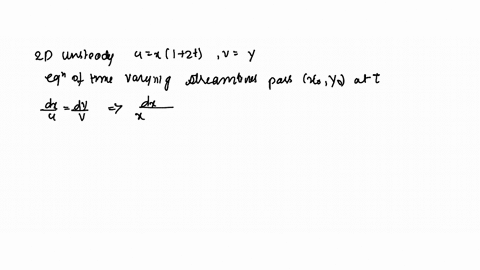 2D unsteady u=x(1+2t), v= y
eqⁿ of time varying streamlines pass (x₀, y₀) at t
dx/u = dy/v => dx/x